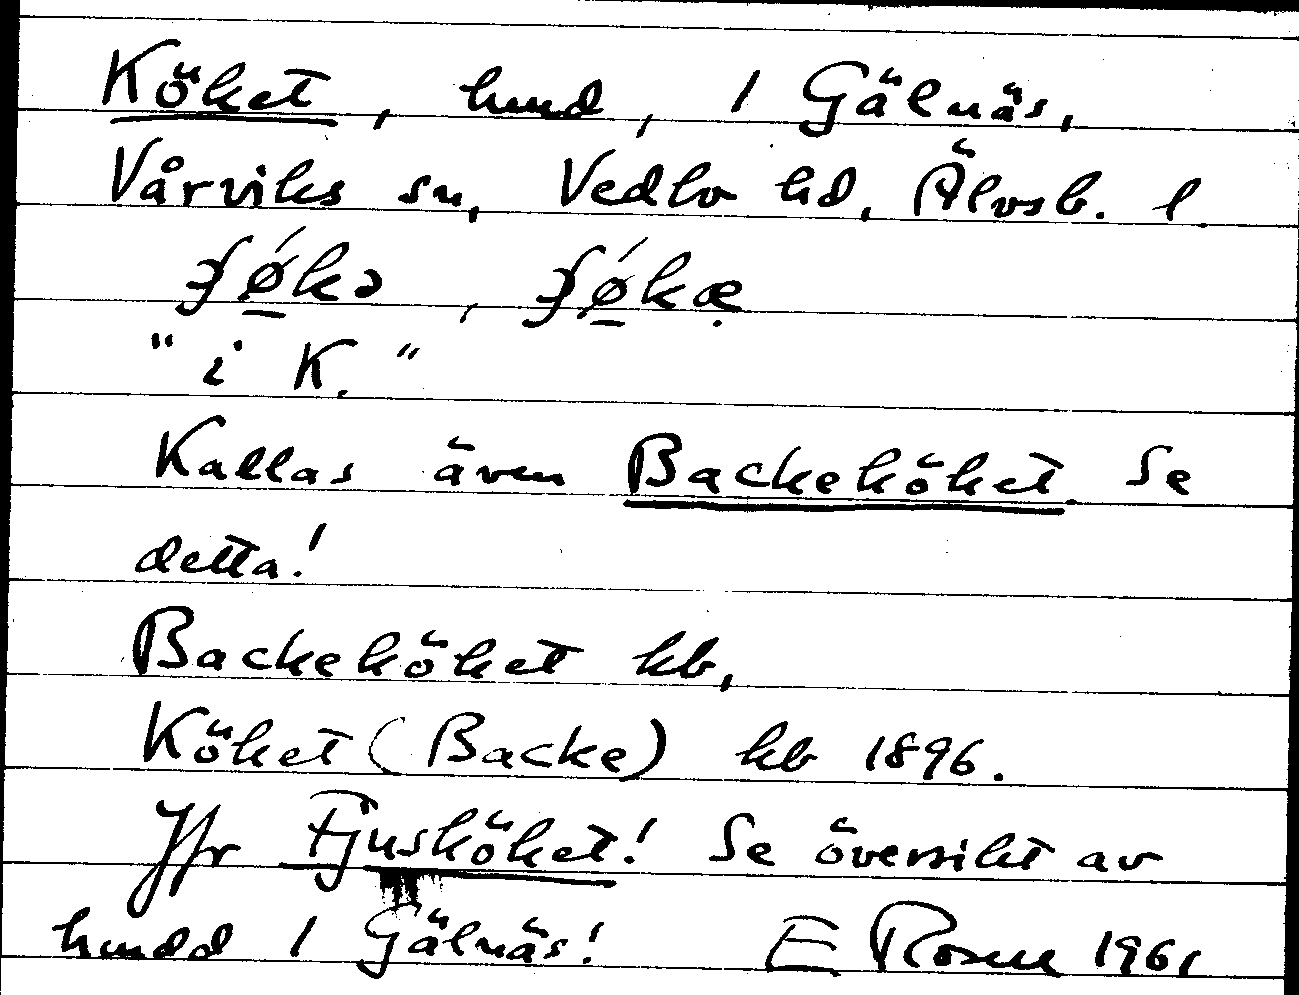 Köket, hmd, 1 Gälnäs,
Vårviks sn, Vedbo hd, Älvsb. l.
"i K."
Kallas även Backeköket. Se
detta!
Backeköket kb,
Köket (Backe) kb 1896.
Jfr Fjusköket! Se översikt av
hmdd 1 Gälnäs! E Rosen 1961